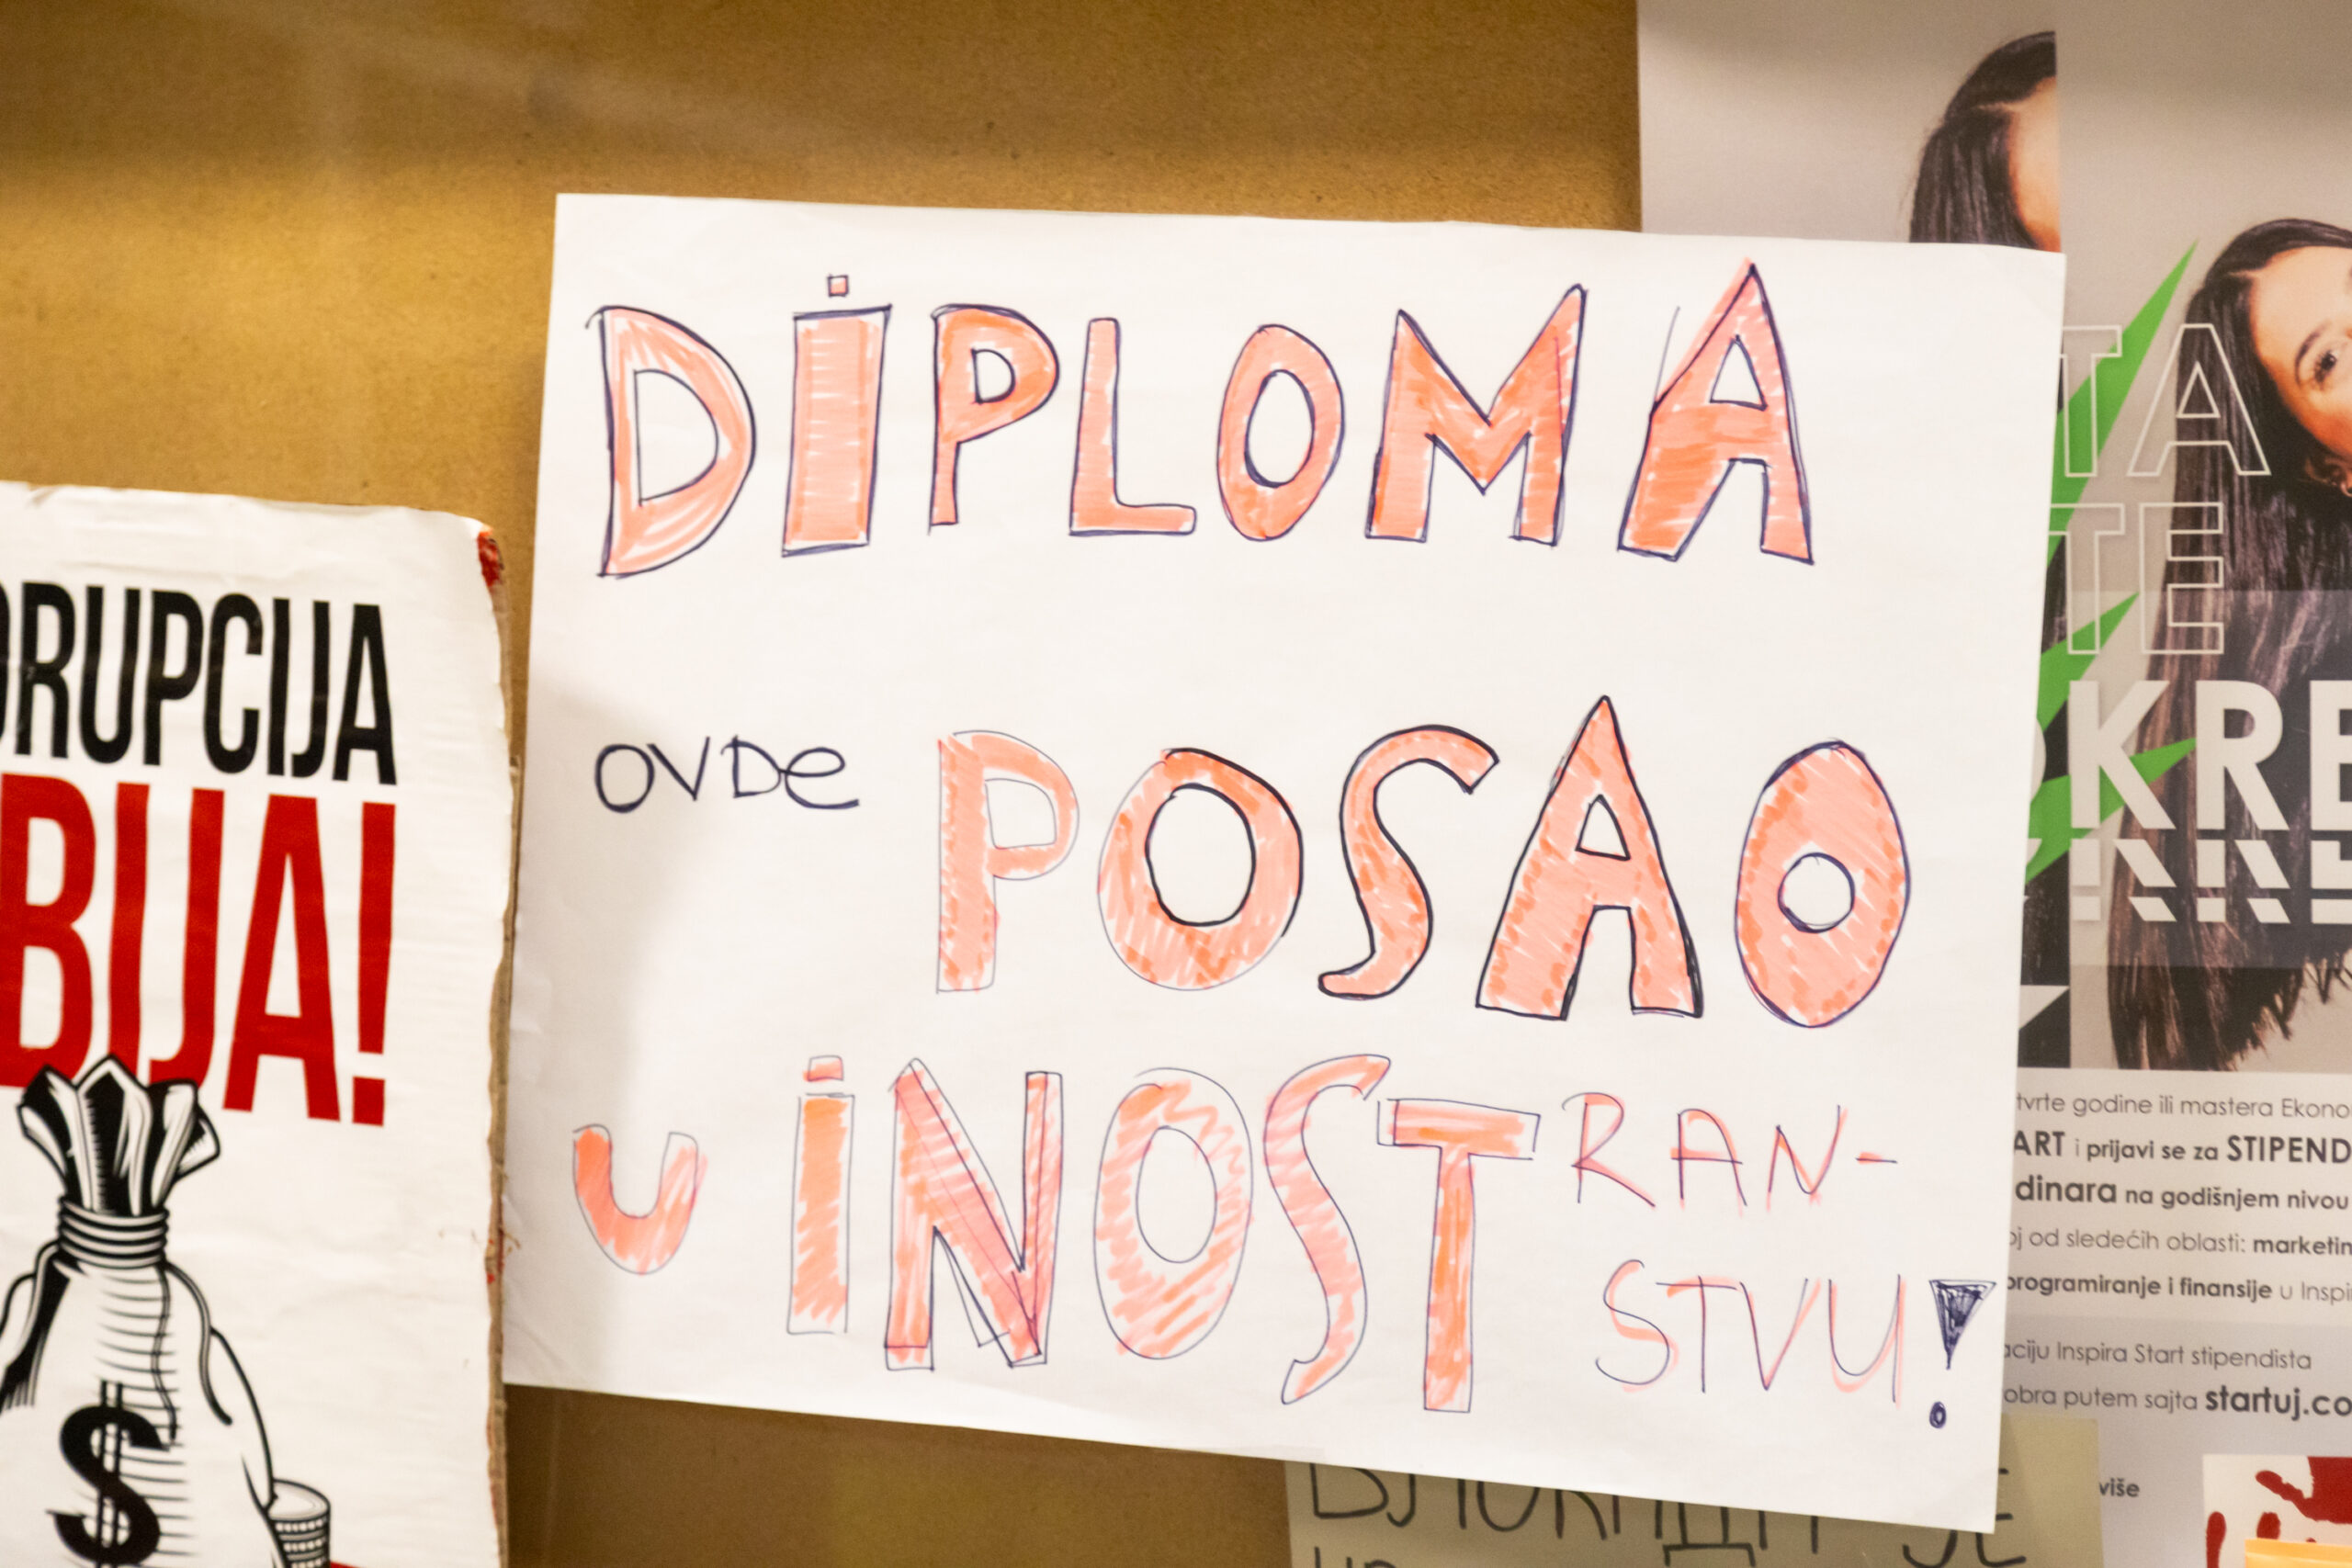 DiPLOMA
OVDe POSAO
U iNOSTRAN-
STVU!
ORUPCIJA
BIJA!
$
TA
TE
KRE
tvrte godine ili mastera Ekono
ART i prijavi se za STIPEND
dinara na godišnjem nivou
oj od sledećih oblasti: marketin
programiranje i finansije u Inspi
aciju Inspira Start stipendista
obra putem sajta startuj.co
više
БЛОКАДА ЈЕ